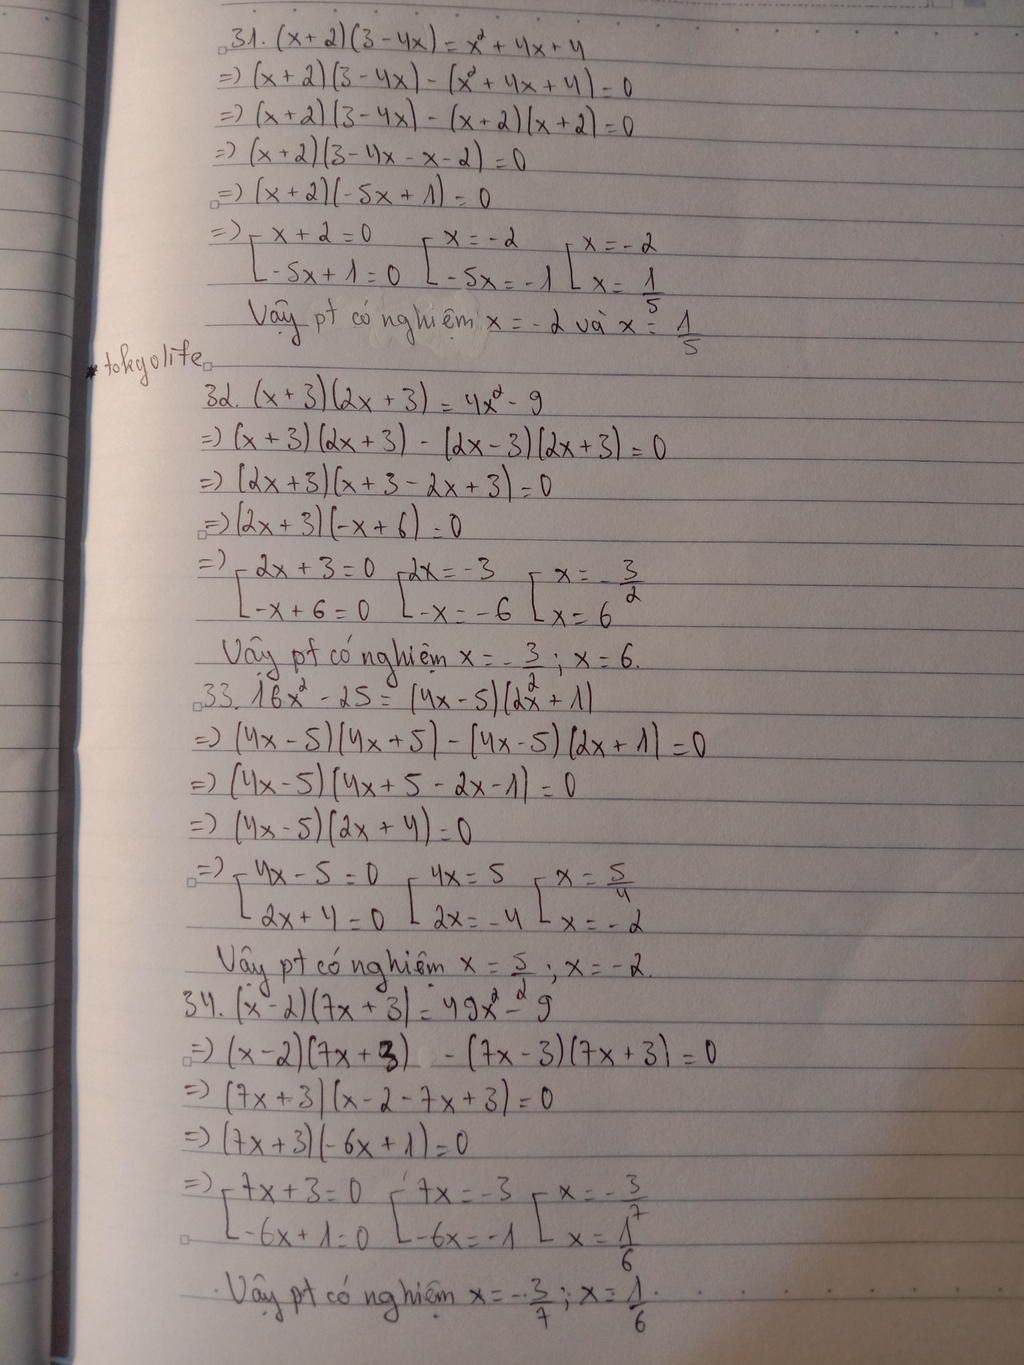 31. (x+2)(3-4x) = x² + 4x + 4
=> (x+2)(3-4x) - (x² + 4x + 4) = 0
=> (x+2)(3-4x) - (x+2)(x+2) = 0
=> (x+2)(3-4x-x-2) = 0
=> (x+2)(-5x+1) = 0
=> [x+2=0 [x=-2 [x=-2
[-5x+1=0 [-5x=-1 [x=1/5
Vậy pt có nghiệm x=-2 và x=1/5
* tokyolife
32. (x+3)(2x+3) = 4x² - 9
=> (x+3)(2x+3) - (2x-3)(2x+3) = 0
=> (2x+3)(x+3-2x+3) = 0
=> (2x+3)(-x+6) = 0
=> [2x+3=0 [2x=-3 [x=-3/2
[-x+6=0 [-x=-6 [x=6
Vậy pt có nghiệm x=-3/2; x=6.
33. 16x² - 25 = (4x-5)(2x+1)
=> (4x-5)(4x+5) - (4x-5)(2x+1) = 0
=> (4x-5)(4x+5-2x-1) = 0
=> (4x-5)(2x+4) = 0
=> [4x-5=0 [4x=5 [x=5/4
[2x+4=0 [2x=-4 [x=-2
Vậy pt có nghiệm x=5/2; x=-2.
34. (x-2)(7x+3) = 49x² - 9
=> (x-2)(7x+3) - (7x-3)(7x+3) = 0
=> (7x+3)(x-2-7x+3) = 0
=> (7x+3)(-6x+1) = 0
=> [7x+3=0 [7x=-3 [x=-3/7
[-6x+1=0 [-6x=-1 [x=1/6
Vậy pt có nghiệm x=-3/7; x=1/6